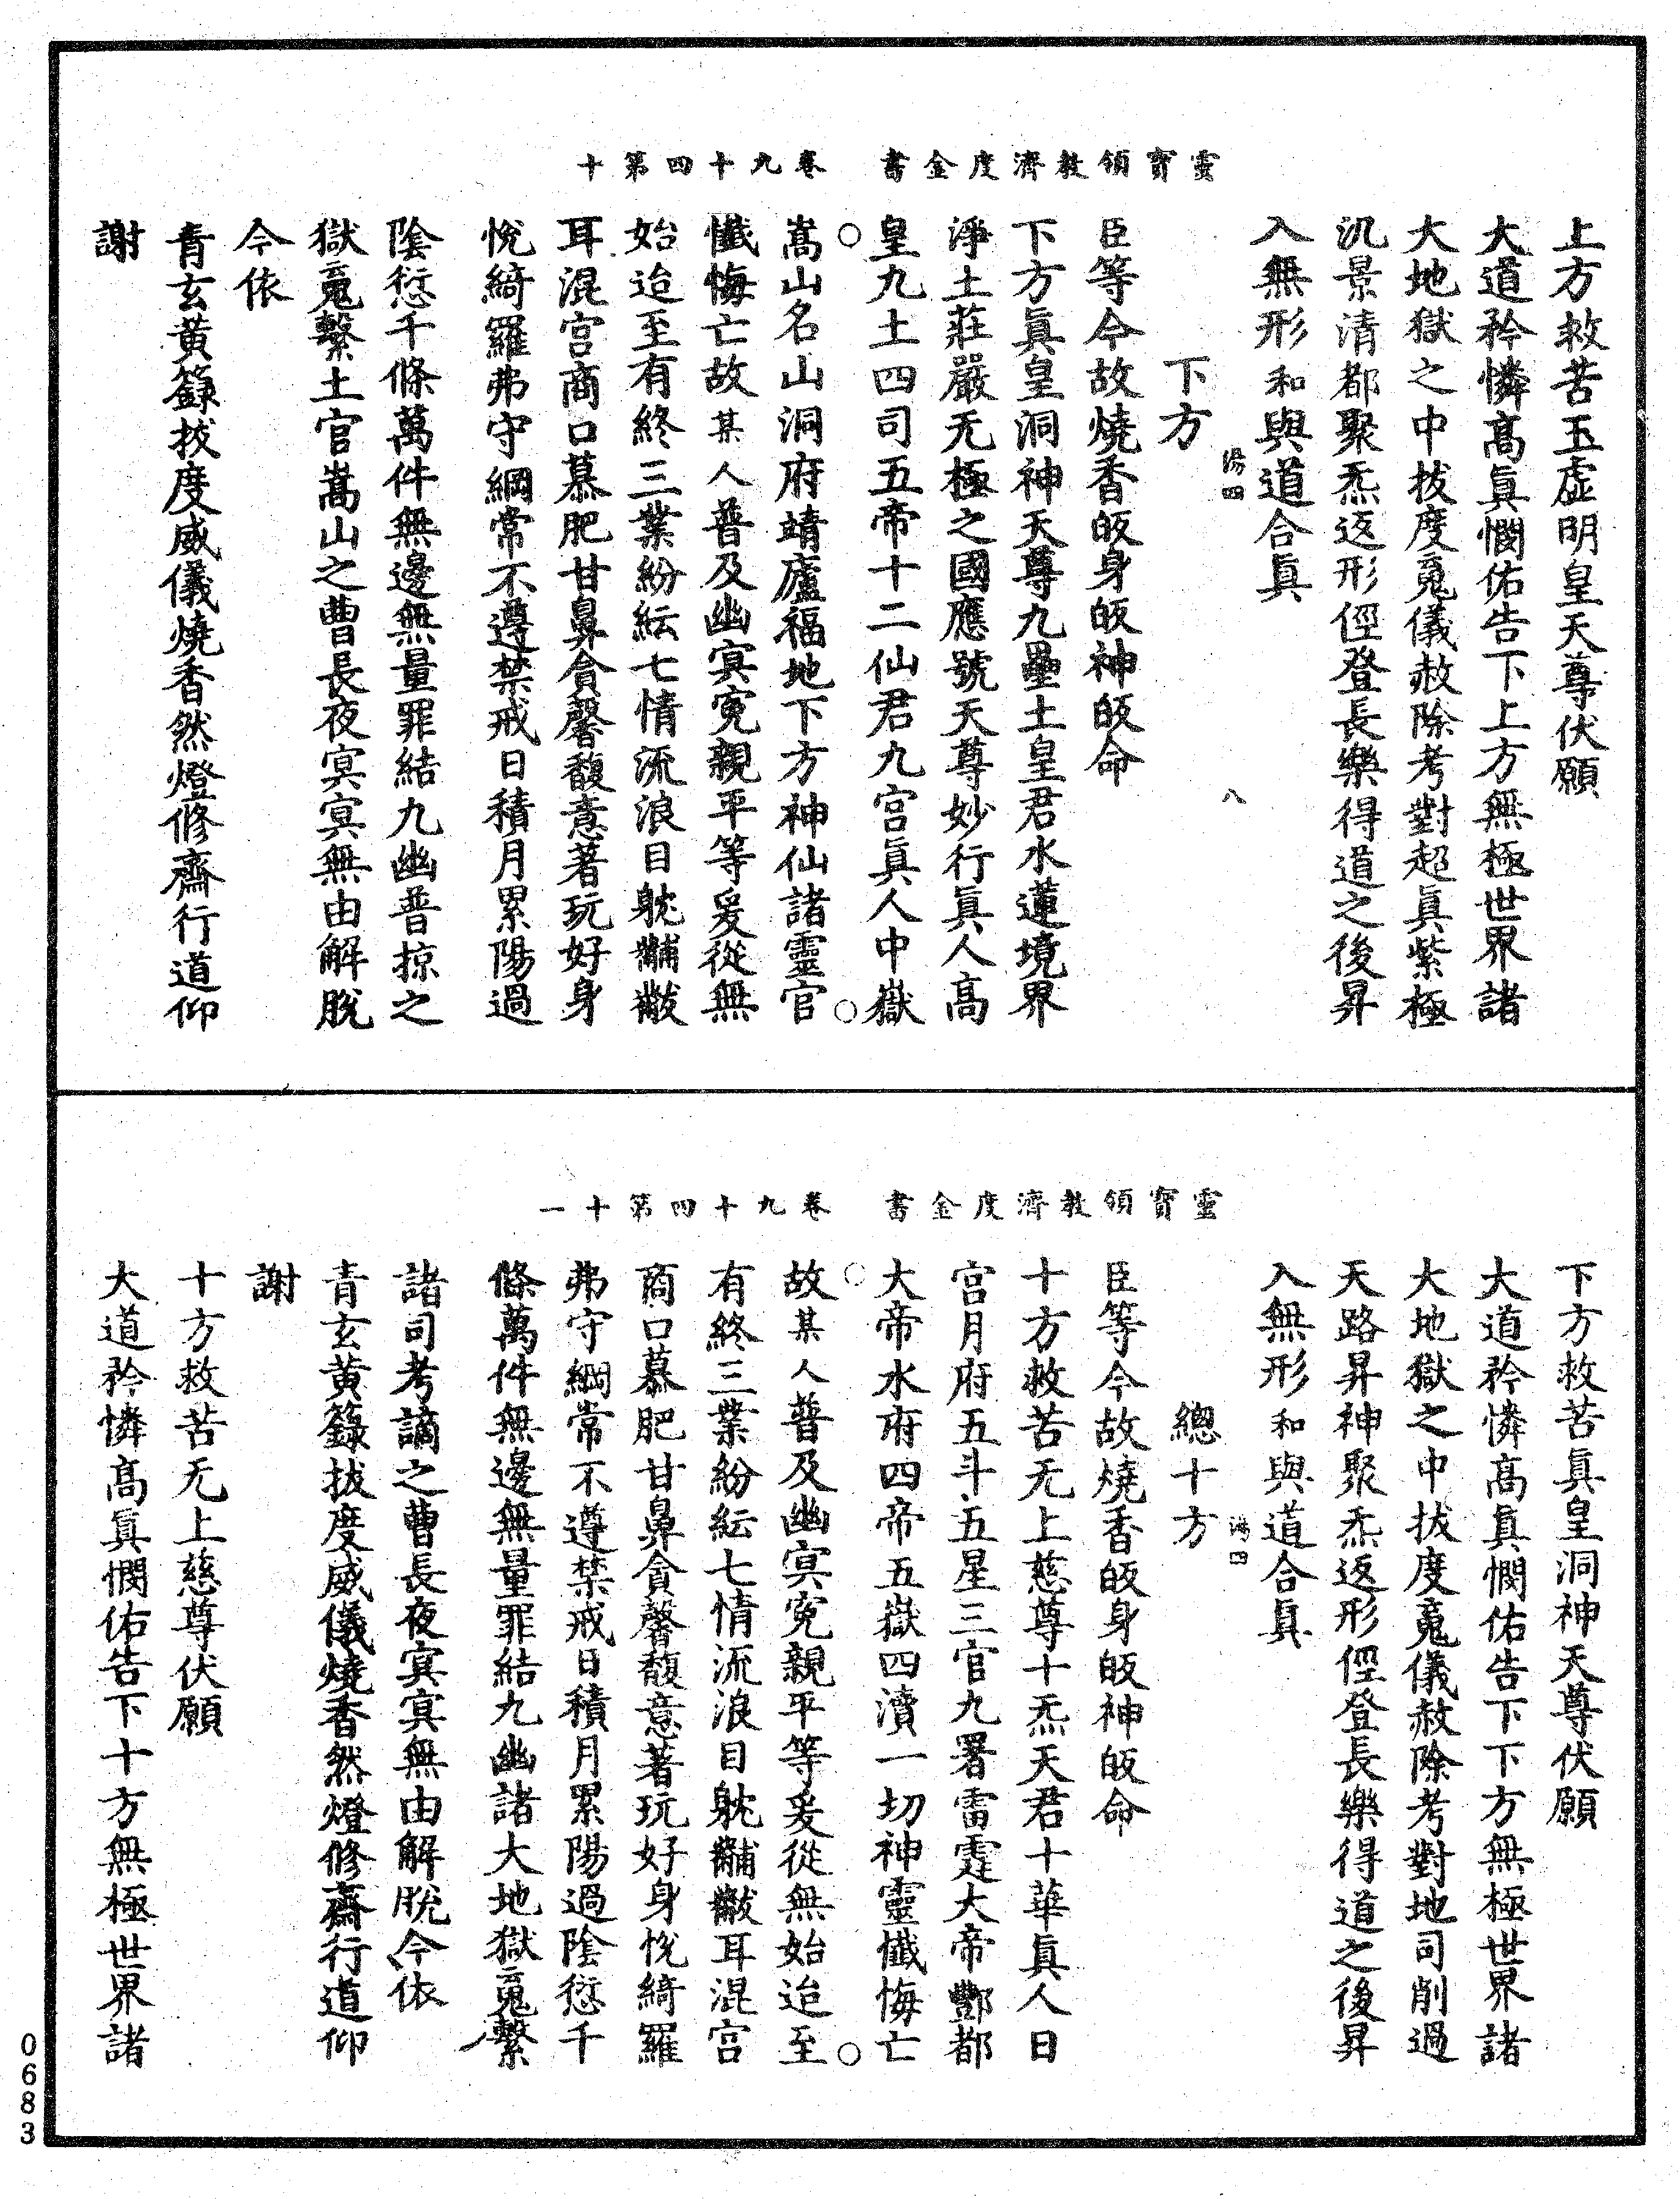 靈寶領教濟度金書　卷九十四第十
上方救苦玉虛明皇天尊伏願
大道矜憐高眞憫佑告下上方無極世界諸
大地獄之中拔度䰟儀赦除考對超眞紫極
汎景清都聚炁返形俓登長樂得道之後昇
入無形和與道合眞
湯四　八
下方
臣等今故燒香皈身皈神皈命
下方眞皇洞神天尊九壘土皇君水蓮境界
淨土莊嚴无極之國應號天尊妙行眞人高
皇九土四司五帝十二仙君九宮眞人中嶽
嵩山名山洞府靖廬福地下方神仙諸靈官
懺悔亡故某人普及幽冥寃親平等爰從無
始迨至有終三業紛紜七情流浪目躭黼黻
耳混宮商口慕肥甘鼻貪馨馥意著玩好身
悅綺羅弗守綱常不遵禁戒日積月累陽過
陰愆千條萬件無邊無量罪結九幽普掠之
獄䰟繫土官嵩山之曹長夜冥冥無由解脫
今依
青玄黃籙拔度威儀燒香然燈修齋行道仰
謝
靈寶領教濟度金書　卷九十四第十一
下方救苦眞皇洞神天尊伏願
大道矜憐高眞憫佑告下下方無極世界諸
大地獄之中拔度䰟儀赦除考對地司削過
天路昇神聚炁返形俓登長樂得道之後昇
入無形和與道合眞
湯四
總十方
臣等今故燒香皈身皈神皈命
十方救苦无上慈尊十炁天君十華眞人日
宮月府五斗五星三官九署雷霆大帝酆都
大帝水府四帝五嶽四瀆一切神靈懺悔亡
故某人普及幽冥寃親平等爰從無始迨至
有終三業紛紜七情流浪目躭黼黻耳混宮
商口慕肥甘鼻貪馨馥意著玩好身悅綺羅
弗守綱常不遵禁戒日積月累陽過陰愆千
條萬件無邊無量罪結九幽諸大地獄䰟繫
諸司考謫之曹長夜冥冥無由解脫今依
青玄黃籙拔度威儀燒香然燈修齋行道仰
謝
十方救苦无上慈尊伏願
大道矜憐高眞憫佑告下十方無極世界諸
0683